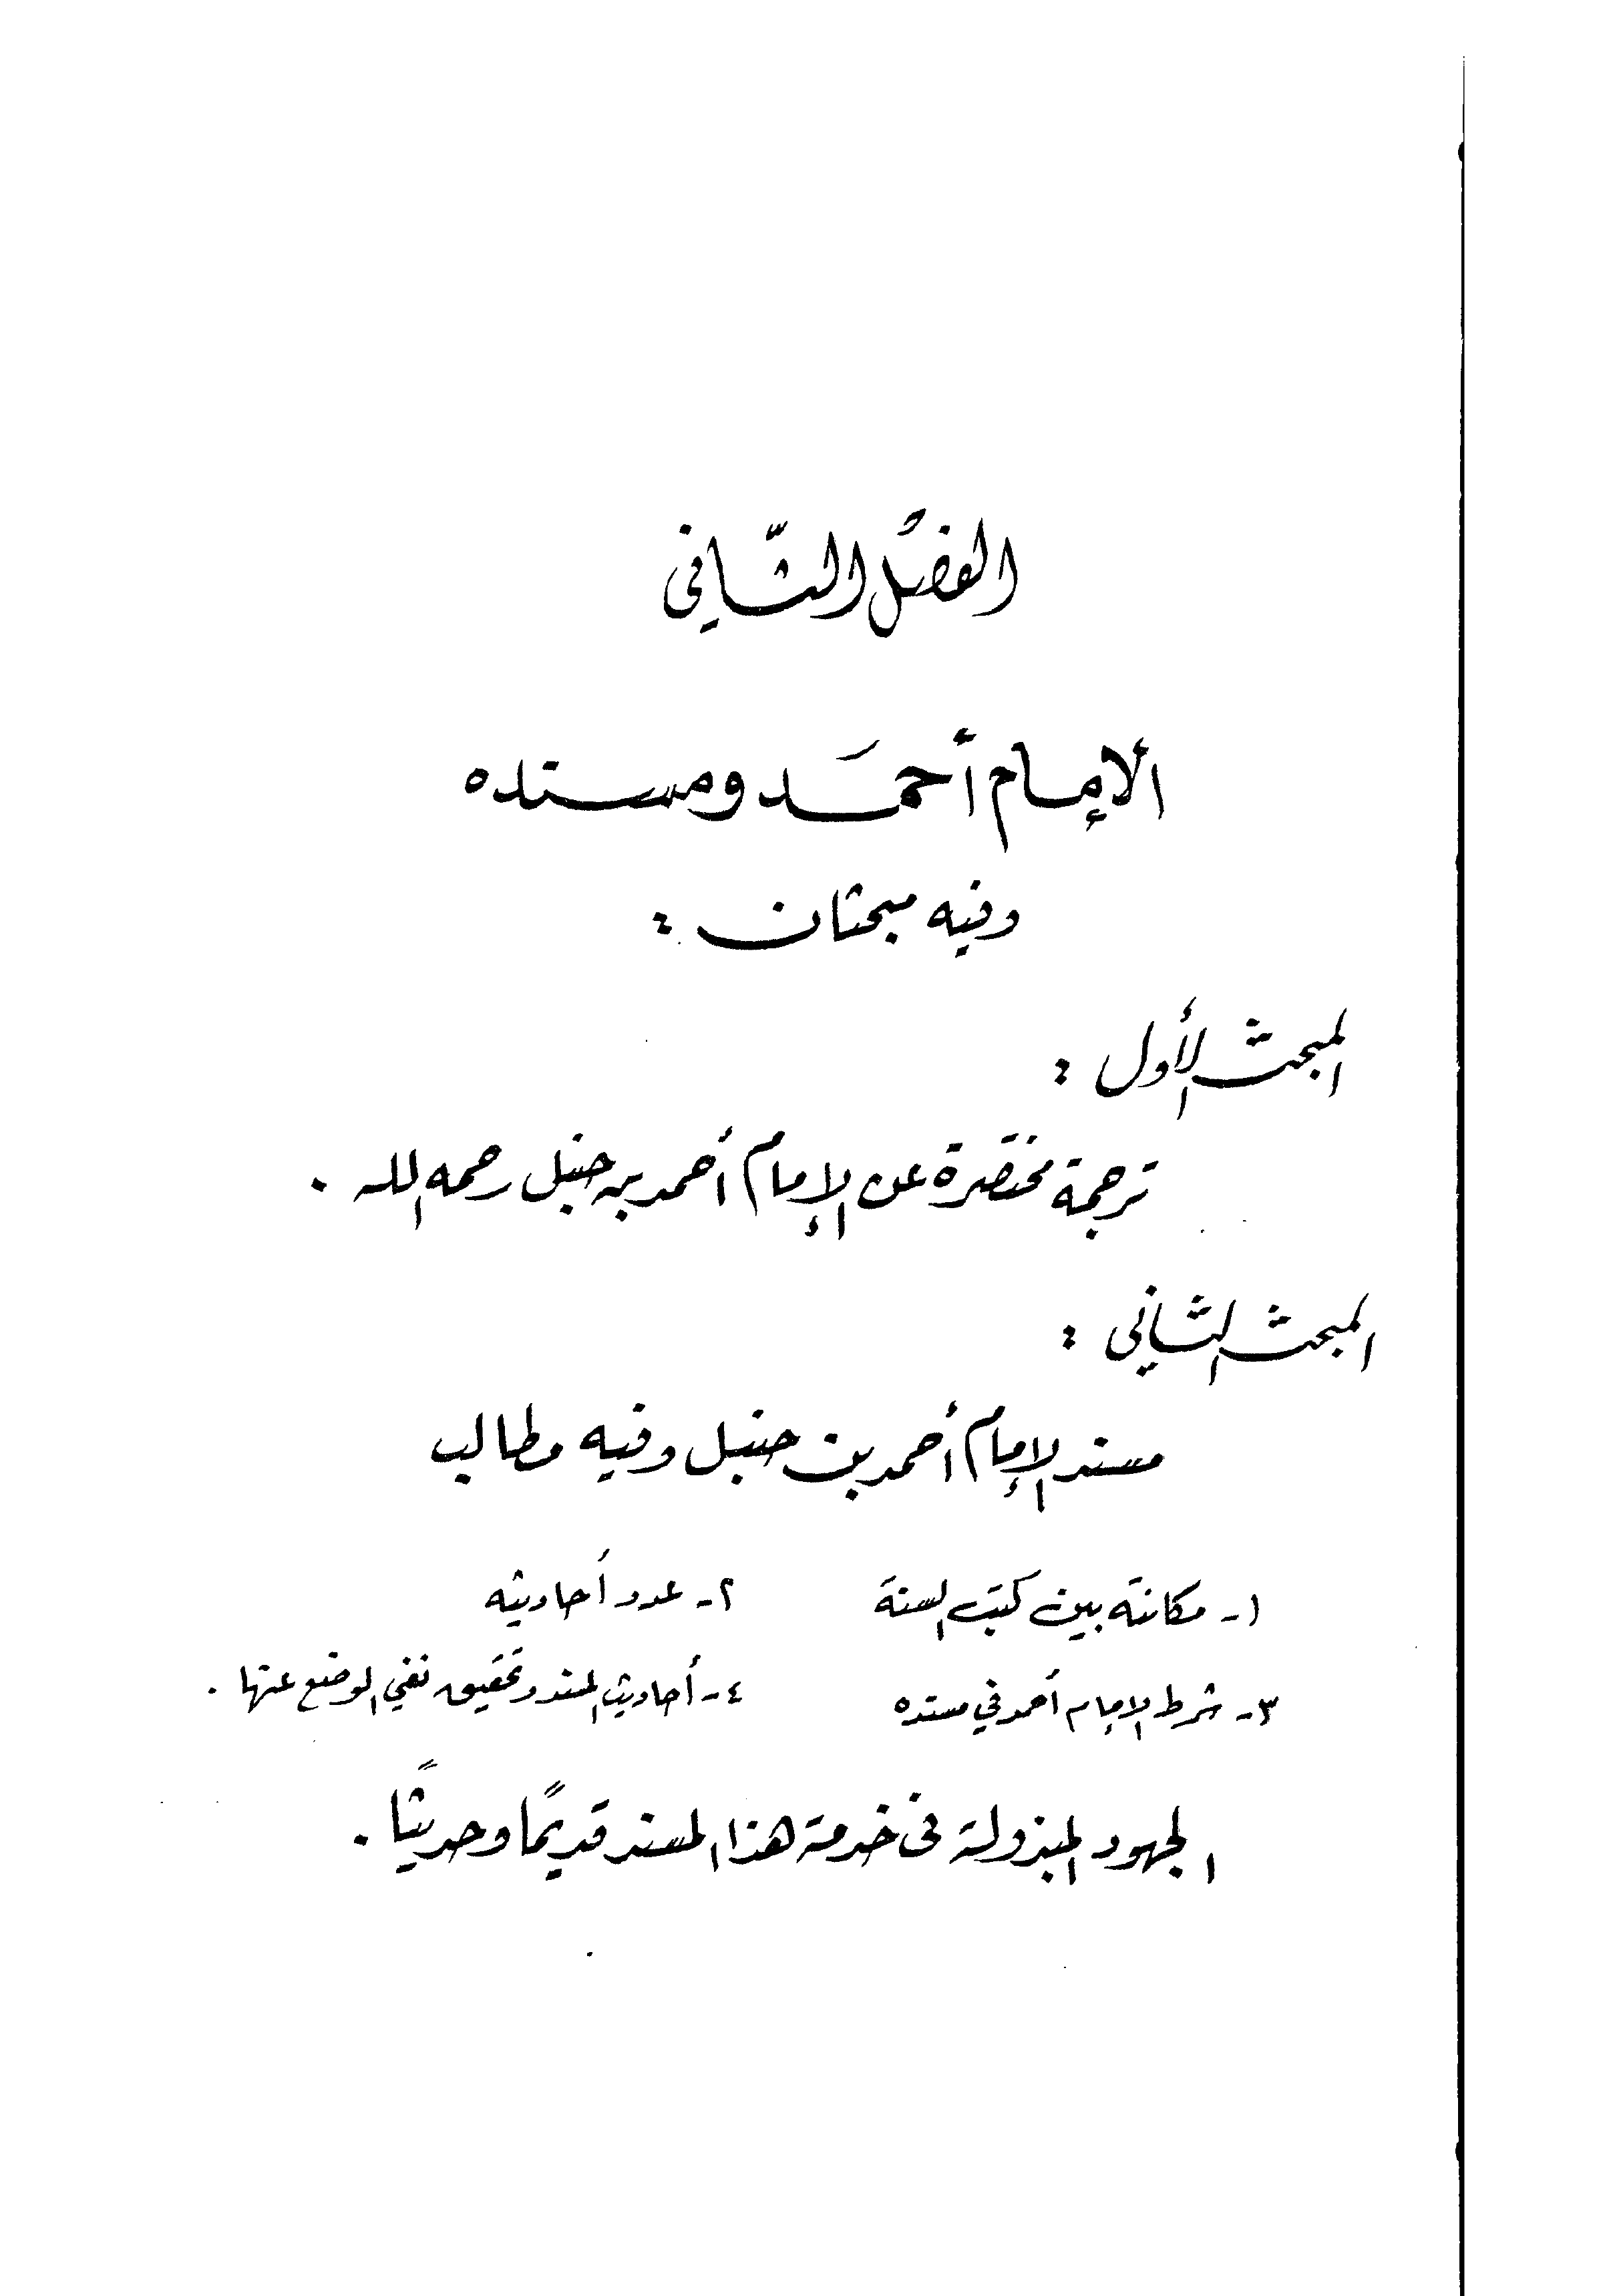 الفصُل الثّاني
الإمام أحمَد ومسنده
وفيه مبحثان :
المبحث الأول :
ترجمة مختصرة عن الإمام أحمد بن حنبل رحمه الله .
المبحث الثاني :
مسند الإمام أحمد بن حنبل وفيه مطالب
١- مكانته بين كتب السنة ٢- عدد أحاديثه
٣- شرط الإمام أحمد في مسنده ٤- أحاديث المسند وتحقيق نفي الوضع عنها .
الجهود المبذولة في خدمة هذا المسند قديمًا وحديثًا .